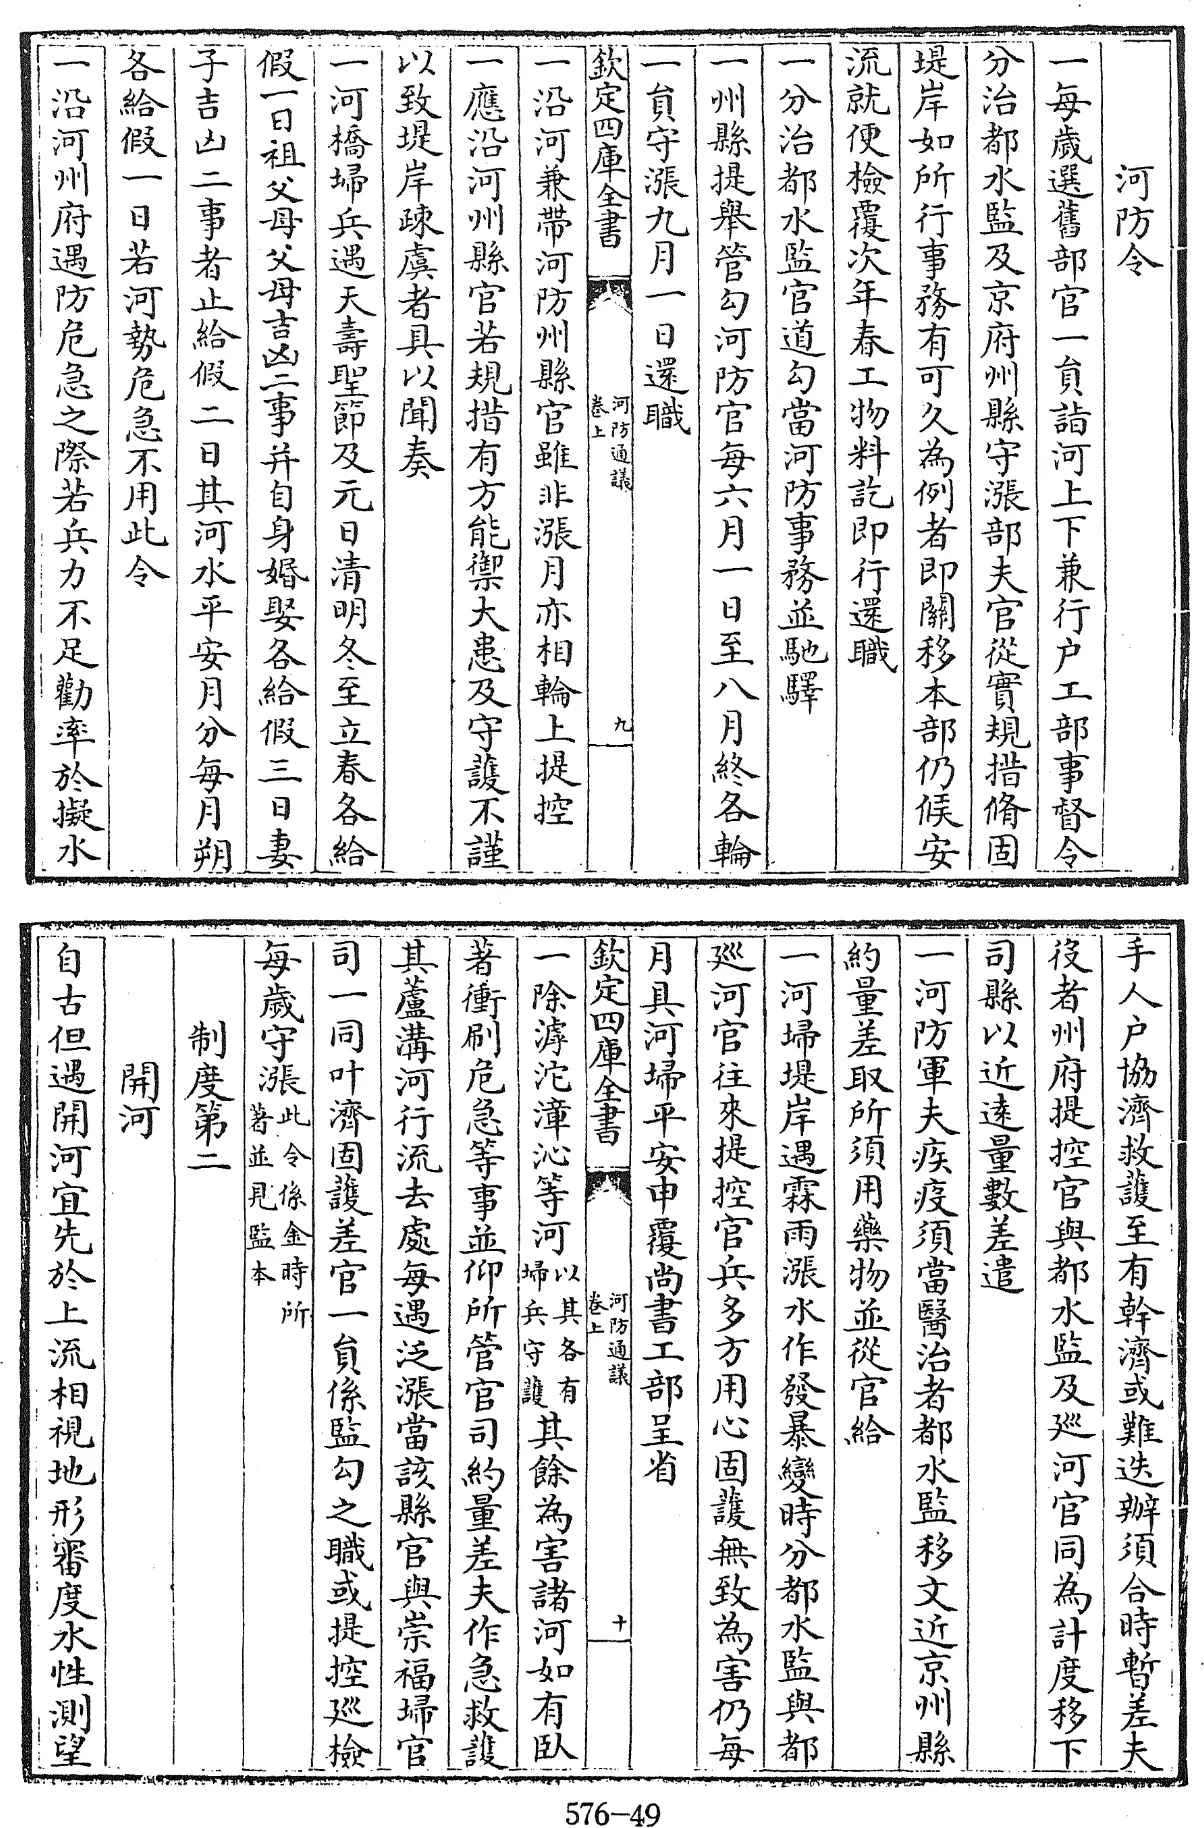 河防令
一每歲選舊部官一員詣河上下兼行户工部事督令
分治都水監及京府州縣守漲部夫官從實規措脩固
堤岸如所行事務有可久為例者即關移本部仍候安
流就便檢覆次年春工物料訖即行還職
一分治都水監官道勾當河防事務並馳驛
一州縣提舉管勾河防官每六月一日至八月終各輪
一員守漲九月一日還職
欽定四庫全書
河防通議
卷上
九
一沿河兼帶河防州縣官雖非漲月亦相輪上提控
一應沿河州縣官若規措有方能禦大患及守護不謹
以致堤岸疎虞者具以聞奏
一河橋埽兵遇天壽聖節及元日清明冬至立春各給
假一日祖父母父母吉凶二事并自身婚娶各給假三日妻
子吉凶二事者止給假二日其河水平安月分每月朔
各給假一日若河勢危急不用此令
一沿河州府遇防危急之際若兵力不足勸率於擬水
手人户協濟救護至有幹濟或難迭辦須合時暫差夫
役者州府提控官與都水監及廵河官同為計度移下
司縣以近遠量數差遣
一河防軍夫疾疫須當醫治者都水監移文近京州縣
約量差取所須用藥物並從官給
一河埽堤岸遇霖雨漲水作發暴變時分都水監與都
廵河官往來提控官兵多方用心固護無致為害仍每
月具河埽平安申覆尚書工部呈省
欽定四庫全書
河防通議
卷上
十
一除滹沱漳沁等河以其各有埽兵守護其餘為害諸河如有臥
著衝刷危急等事並仰所管官司約量差夫作急救護
其蘆溝河行流去處每遇泛漲當該縣官與崇福埽官
司一同叶濟固護差官一員係監勾之職或提控廵檢
每歲守漲此令係金時所著並見監本
制度第二
開河
自古但遇開河宜先於上流相視地形審度水性測望
576-49